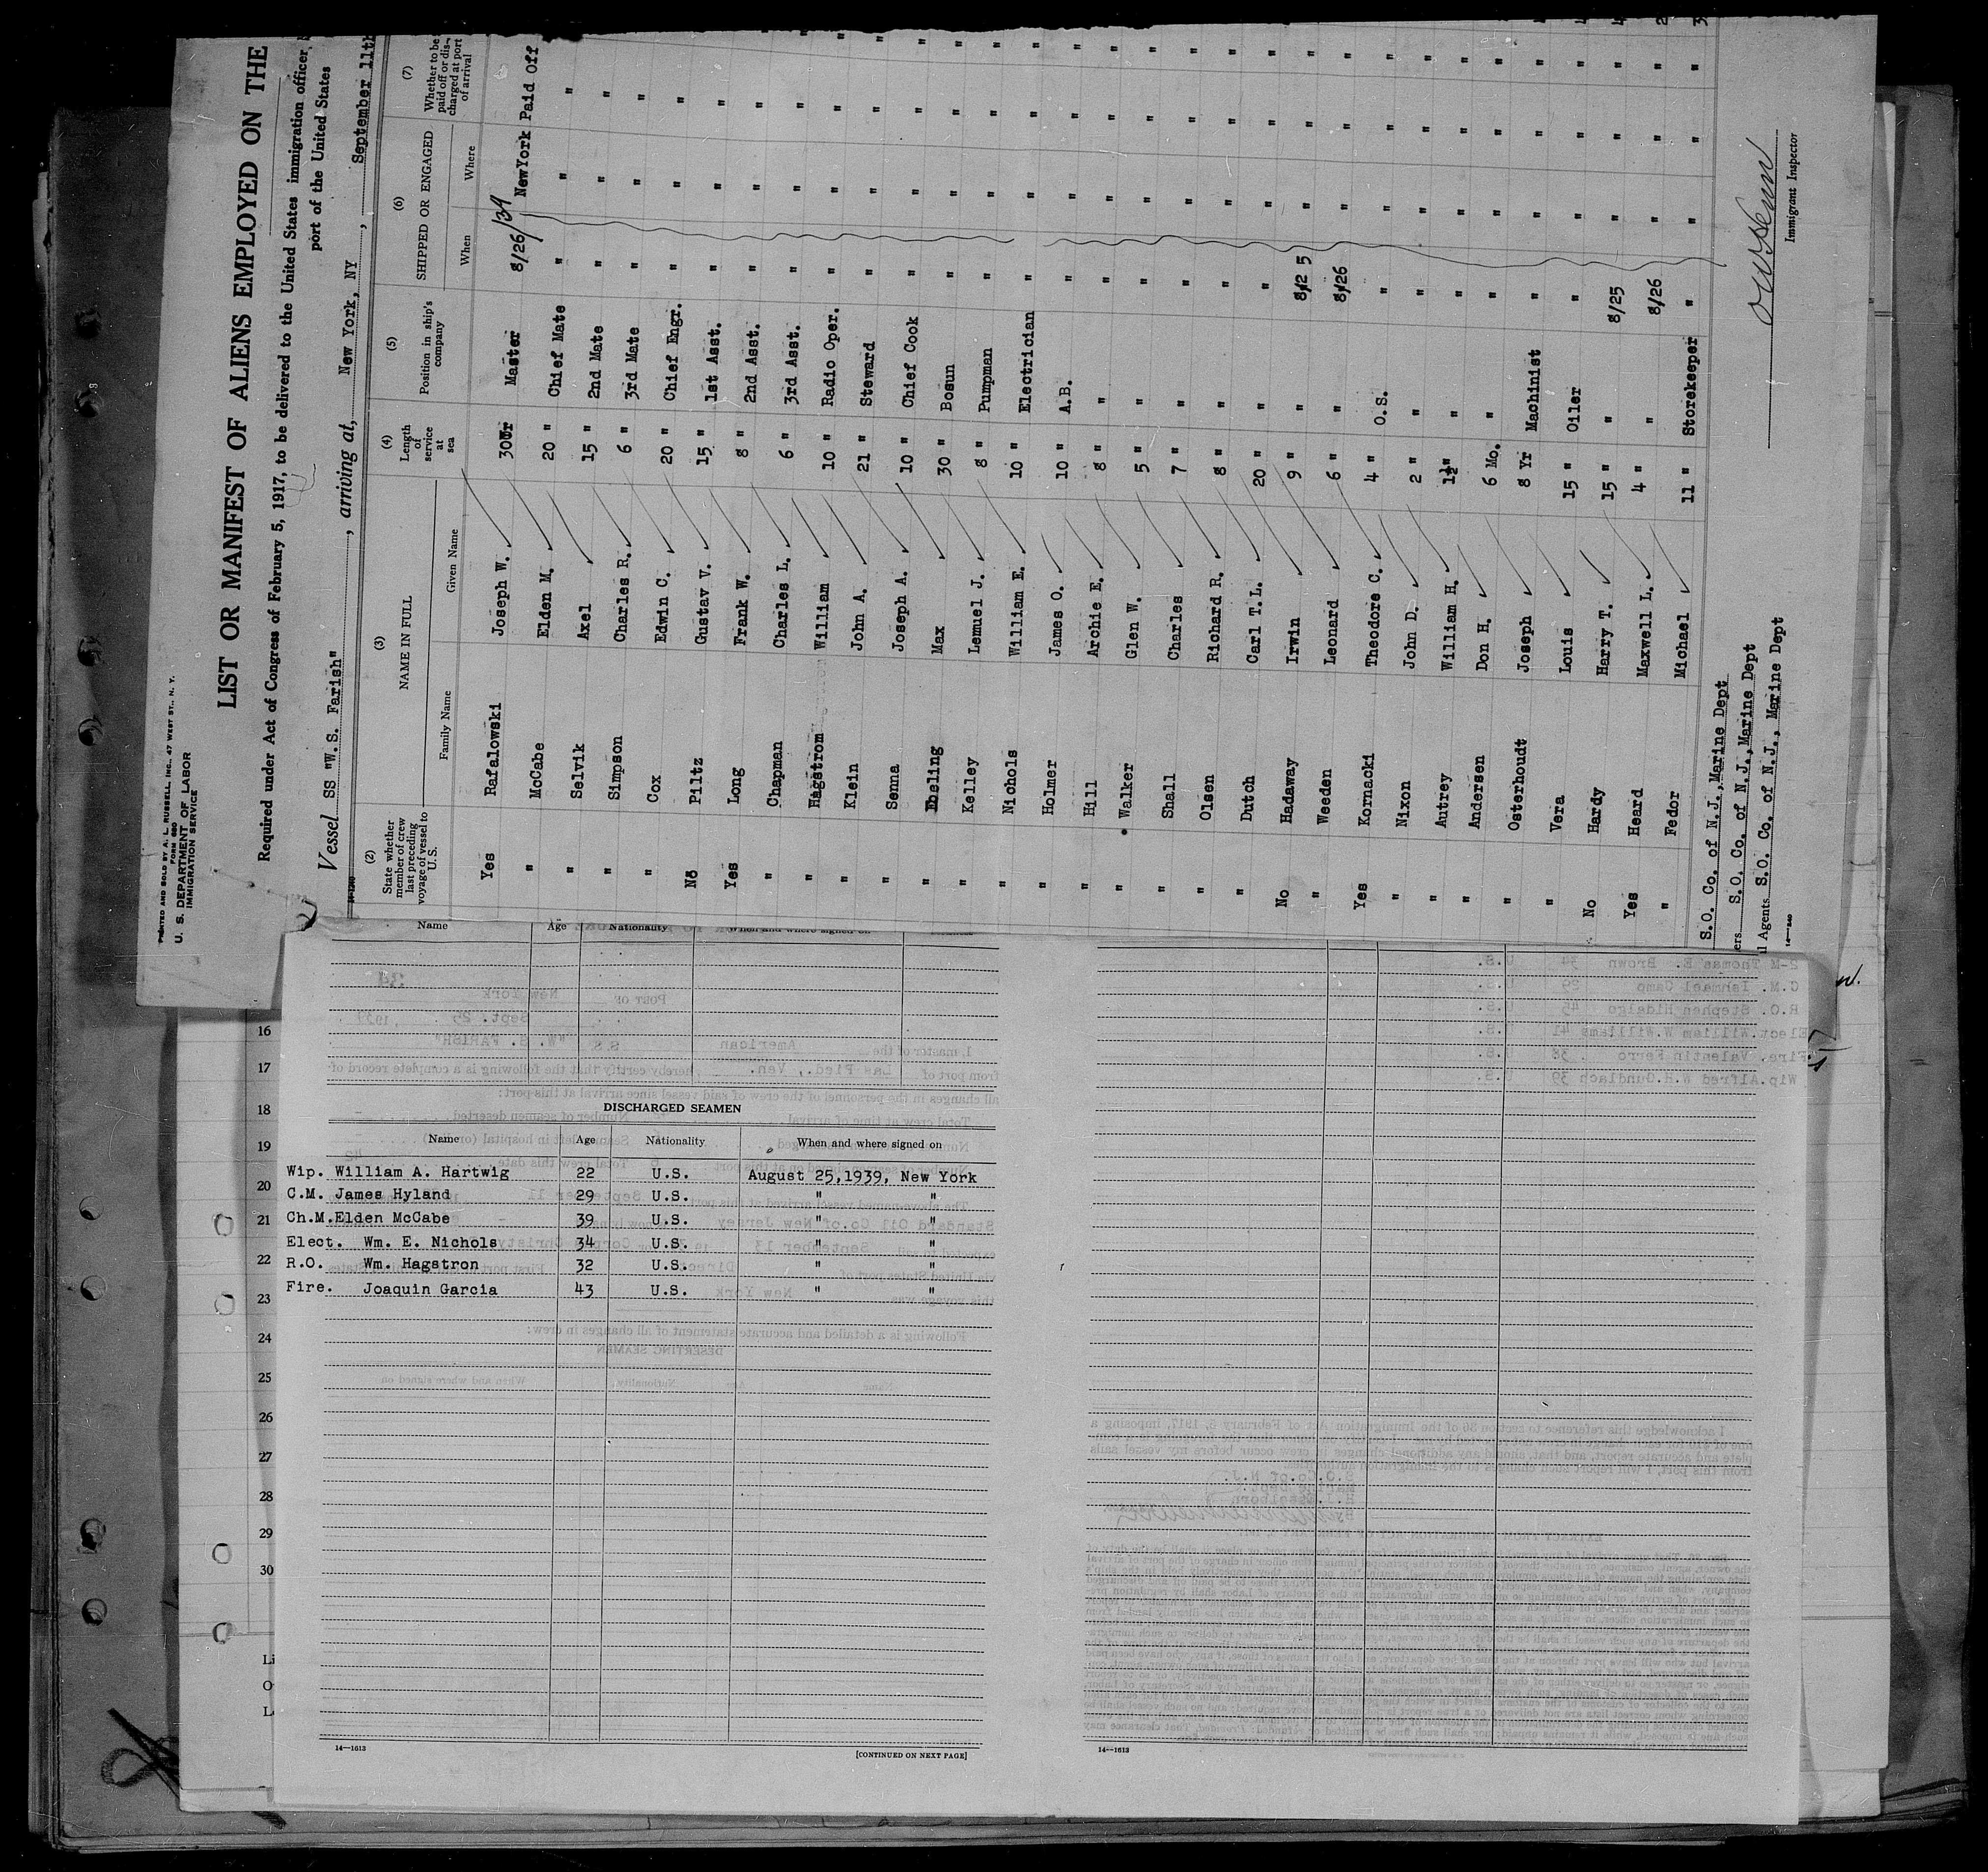 PRINTED AND SOLD BY A. L. RUSSELL, INC., 47 WEST ST., N. Y.
FORM 680
U. S. DEPARTMENT OF LABOR
IMMIGRATION SERVICE
LIST OR MANIFEST OF ALIENS EMPLOYED ON THE
Required under Act of Congress of February 5, 1917, to be delivered to the United States immigration officer
port of the United States
Vessel SS "W.S. Farish", arriving at, New York, NY, September 11th
(2) (3) (4) (5) (6) (7)
State whether member of crew last preceding voyage of vessel to U.S. NAME IN FULL Length of service at sea Position in ship's company SHIPPED OR ENGAGED Whether to be paid off or discharged at port of arrival
Family Name Given Name When Where
Yes Rafalowski Joseph W. 30Yr Master 8/26/39 NewYork Paid Off
" McCabe Elden M. 20 " Chief Mate " " "
" Selvik Axel 15 " 2nd Mate " " "
" Simpson Charles R. 6 " 3rd Mate " " "
" Cox Edwin C. 20 " Chief Engr. " " "
No Piltz Gustav V. 15 " 1st Asst. " " "
Yes Long Frank W. 8 " 2nd Asst. " " "
" Chapman Charles L. 6 " 3rd Asst. " " "
" Hagstrom William 10 " Radio Oper. " " "
" Klein John A. 21 " Steward " " "
" Senna Joseph A. 10 " Chief Cook " " "
" Ebeling Max 30 " Bosun " " "
" Kelley Lemuel J. 8 " Pumpman " " "
" Nichols William E. 10 " Electrician " " "
" Holmer James O. 10 " A.B. " " "
" Hill Archie E. 8 " " " " "
" Walker Glen W. 5 " " " " "
" Shall Charles 7 " " " " "
" Olsen Richard R. 8 " " " " "
" Dutch Carl T.L. 20 " " " " "
No Hadaway Irwin 9 " " 8/25 " "
" Weeden Leonard 6 " " 8/26 " "
Yes Kornacki Theodore C. 4 " O.S. " " "
" Nixon John D. 2 " " " " "
" Autrey William H. 1½" " " " "
" Andersen Don H. 6 Mo. " " " "
" Osterhoudt Joseph 8 Yr Machinist " " "
" Vera Louis 15 " Oiler " " "
No Hardy Harry T. 15 " " 8/25 " "
Yes Heard Maxwell L. 4 " " 8/26 " "
" Fedor Michael 11 " Storekeeper " " "
S.O. Co. of N.J., Marine Dept
ers S.O. Co. of N.J., Marine Dept
l Agents S.O. Co. of N.J., Marine Dept
14-240
Immigrant Inspector
Name Age Nationality When and where signed on
16
17
18
19
20
21
22
23
24
25
26
27
28
29
30
DISCHARGED SEAMEN
Name Age Nationality When and where signed on
Wip. William A. Hartwig 22 U.S. August 25,1939, New York
C.M. James Hyland 29 U.S. " "
Ch.M.Elden McCabe 39 U.S. " "
Elect. Wm. E. Nichols 34 U.S. " "
R.O. Wm. Hagstron 32 U.S. " "
Fire. Joaquin Garcia 43 U.S. " "
14—1613 [CONTINUED ON NEXT PAGE]
14—1613